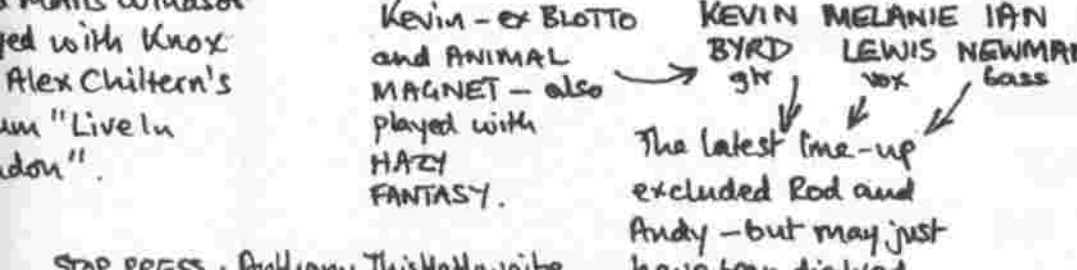 yed with Knox
Alex Chiltern's
um "Live In
don".
Kevin - ex BLOTTO
and ANIMAL
MAGNET - also
played with
HAZY
FANTASY.
KEVIN MELANIE IAN
BYRD LEWIS NEWMAN
gtr vox bass
The latest line-up
excluded Rod and
Andy - but may just
have been
STOP PRESS.